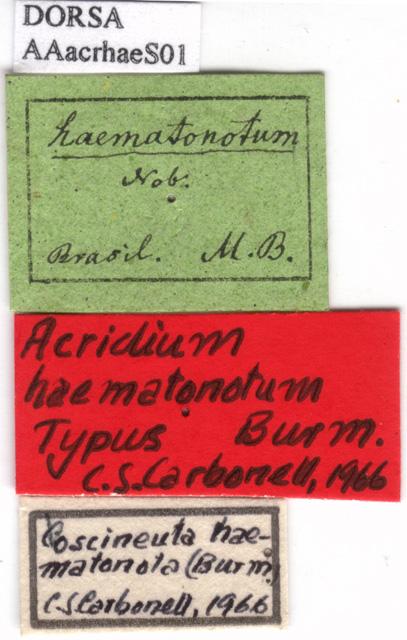 DORSA
AAacrhaeS01
haematonotum
Nob.
Brasil. M.B.
Acridium
haematonotum
Typus Burm.
C.S.Carbonell, 1966
Coscineuta hae-
matonota (Burm)
C.S.Carbonell, 1966